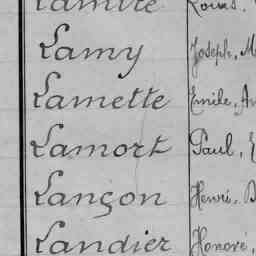 Lamy Joseph, M
Lamette Emile, An
Lamort Paul, E
Lançon Henri, B
Landier Honoré,